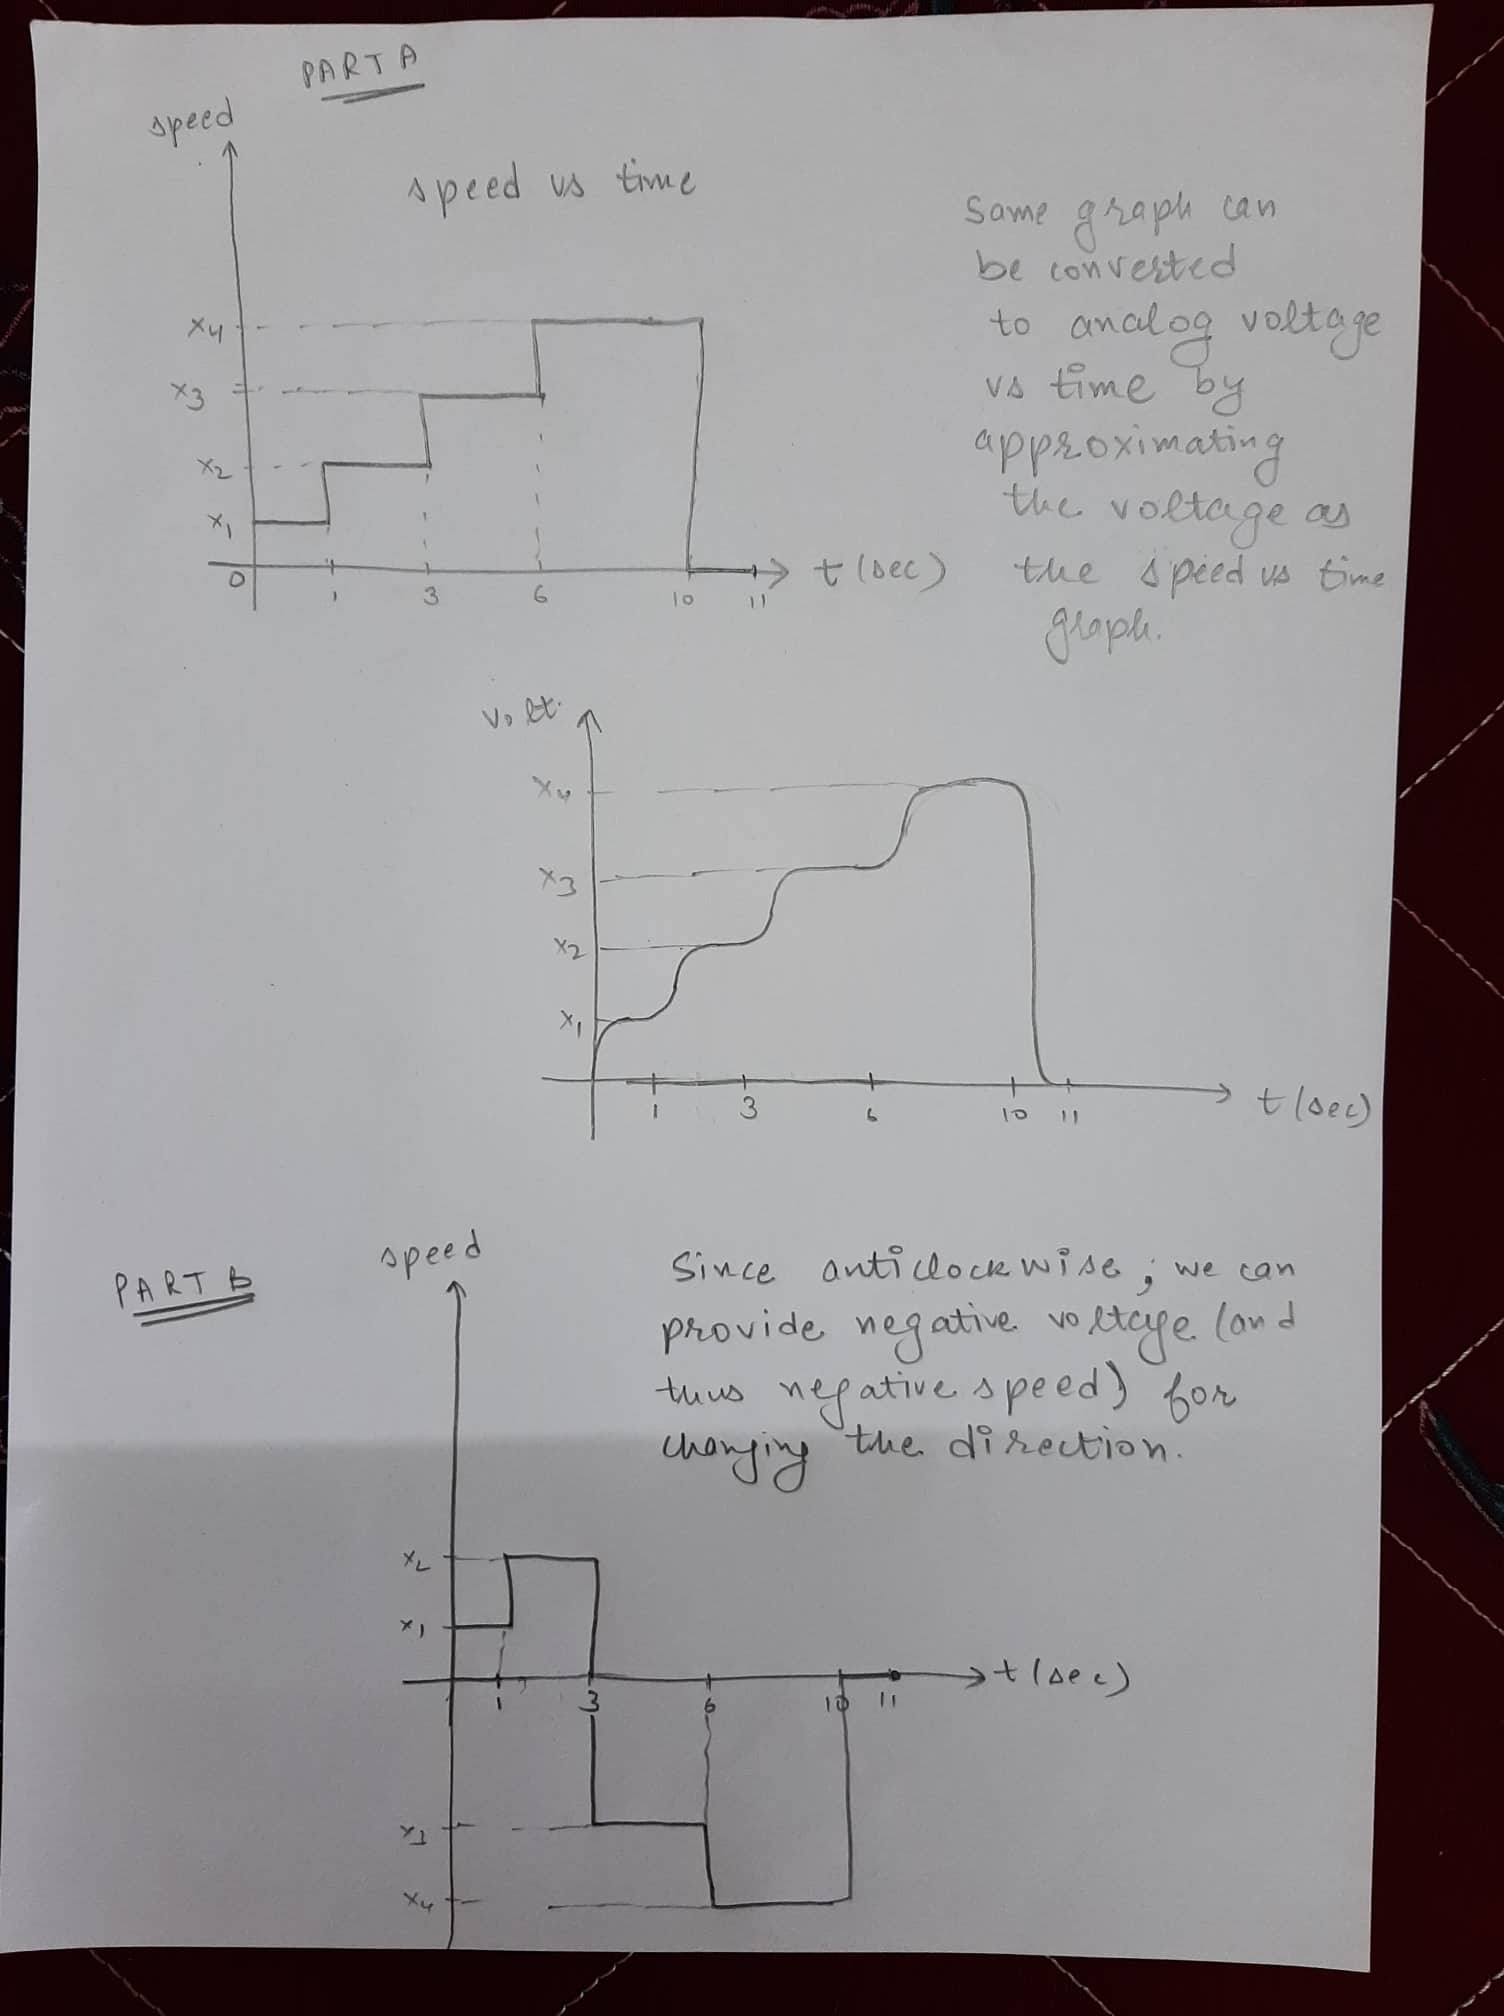 PART A
speed
speed vs time
Same graph can
be converted
to analog voltage
vs time by
approximating
the voltage as
the speed vs time
graph.
x4
x3
x2
x1
0 1 3 6 10 11
t (sec)
Volt.
x4
x3
x2
x1
1 3 6 10 11
t (sec)
PART B
speed
Since anticlockwise; we can
provide negative voltage (and
thus negative speed) for
changing the direction.
x2
x1
1 3 6 10 11
t (sec)
x3
x4